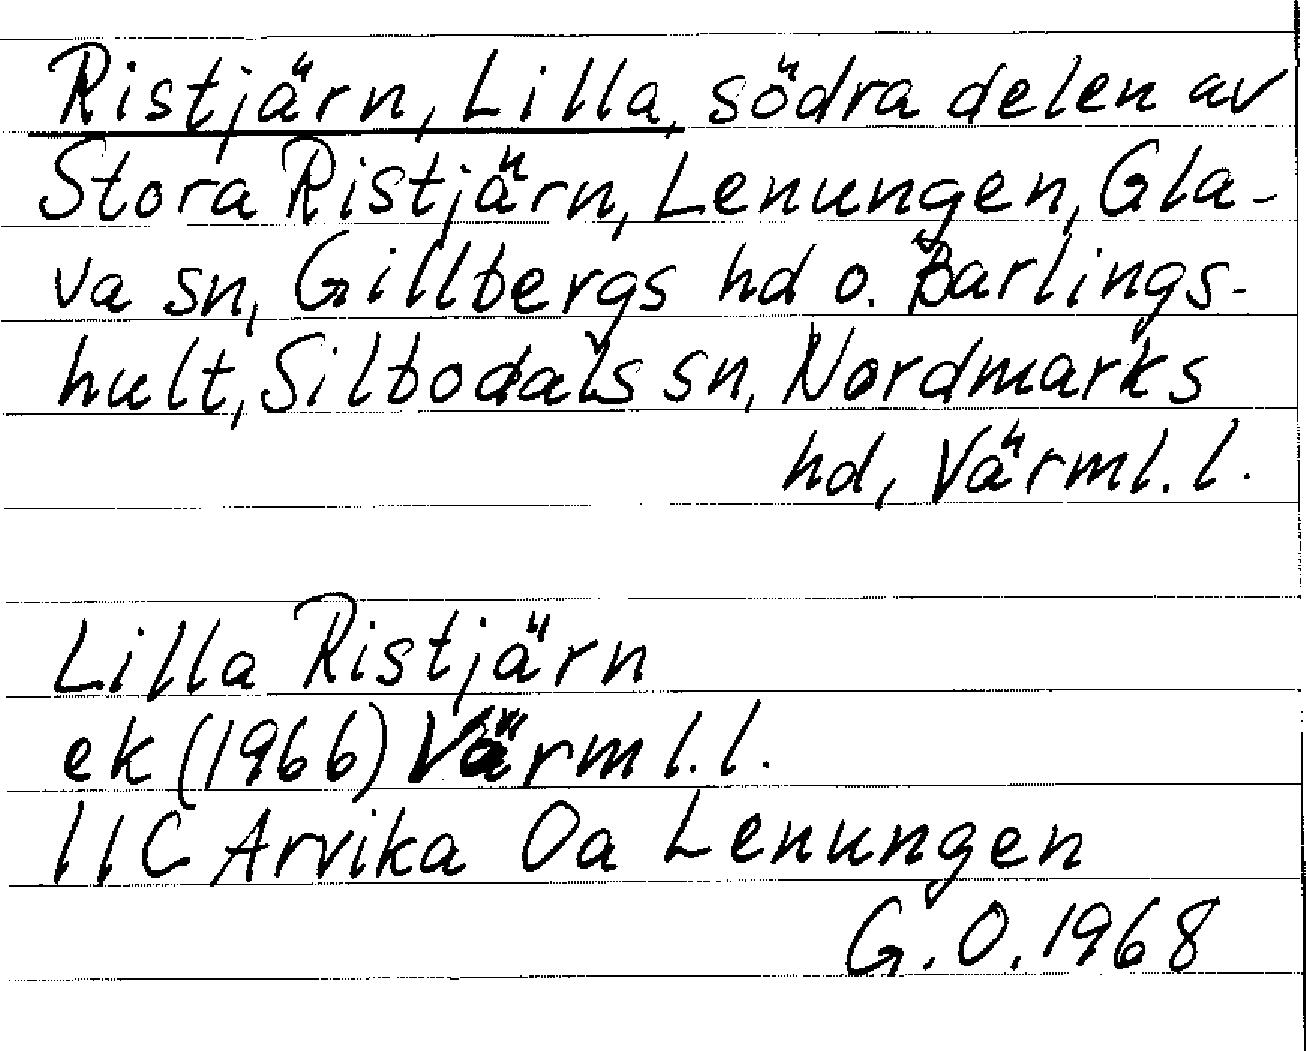 Ristjärn, Lilla, södra delen av
Stora Ristjärn, Lenungen, Gla-
va sn, Gillbergs hd o. Barlings-
hult, Silbodals sn, Nordmarks
hd, Värml. l.
Lilla Ristjärn
ek (1966) Värml. l.
11C Arvika 0a Lenungen
G. O. 1968